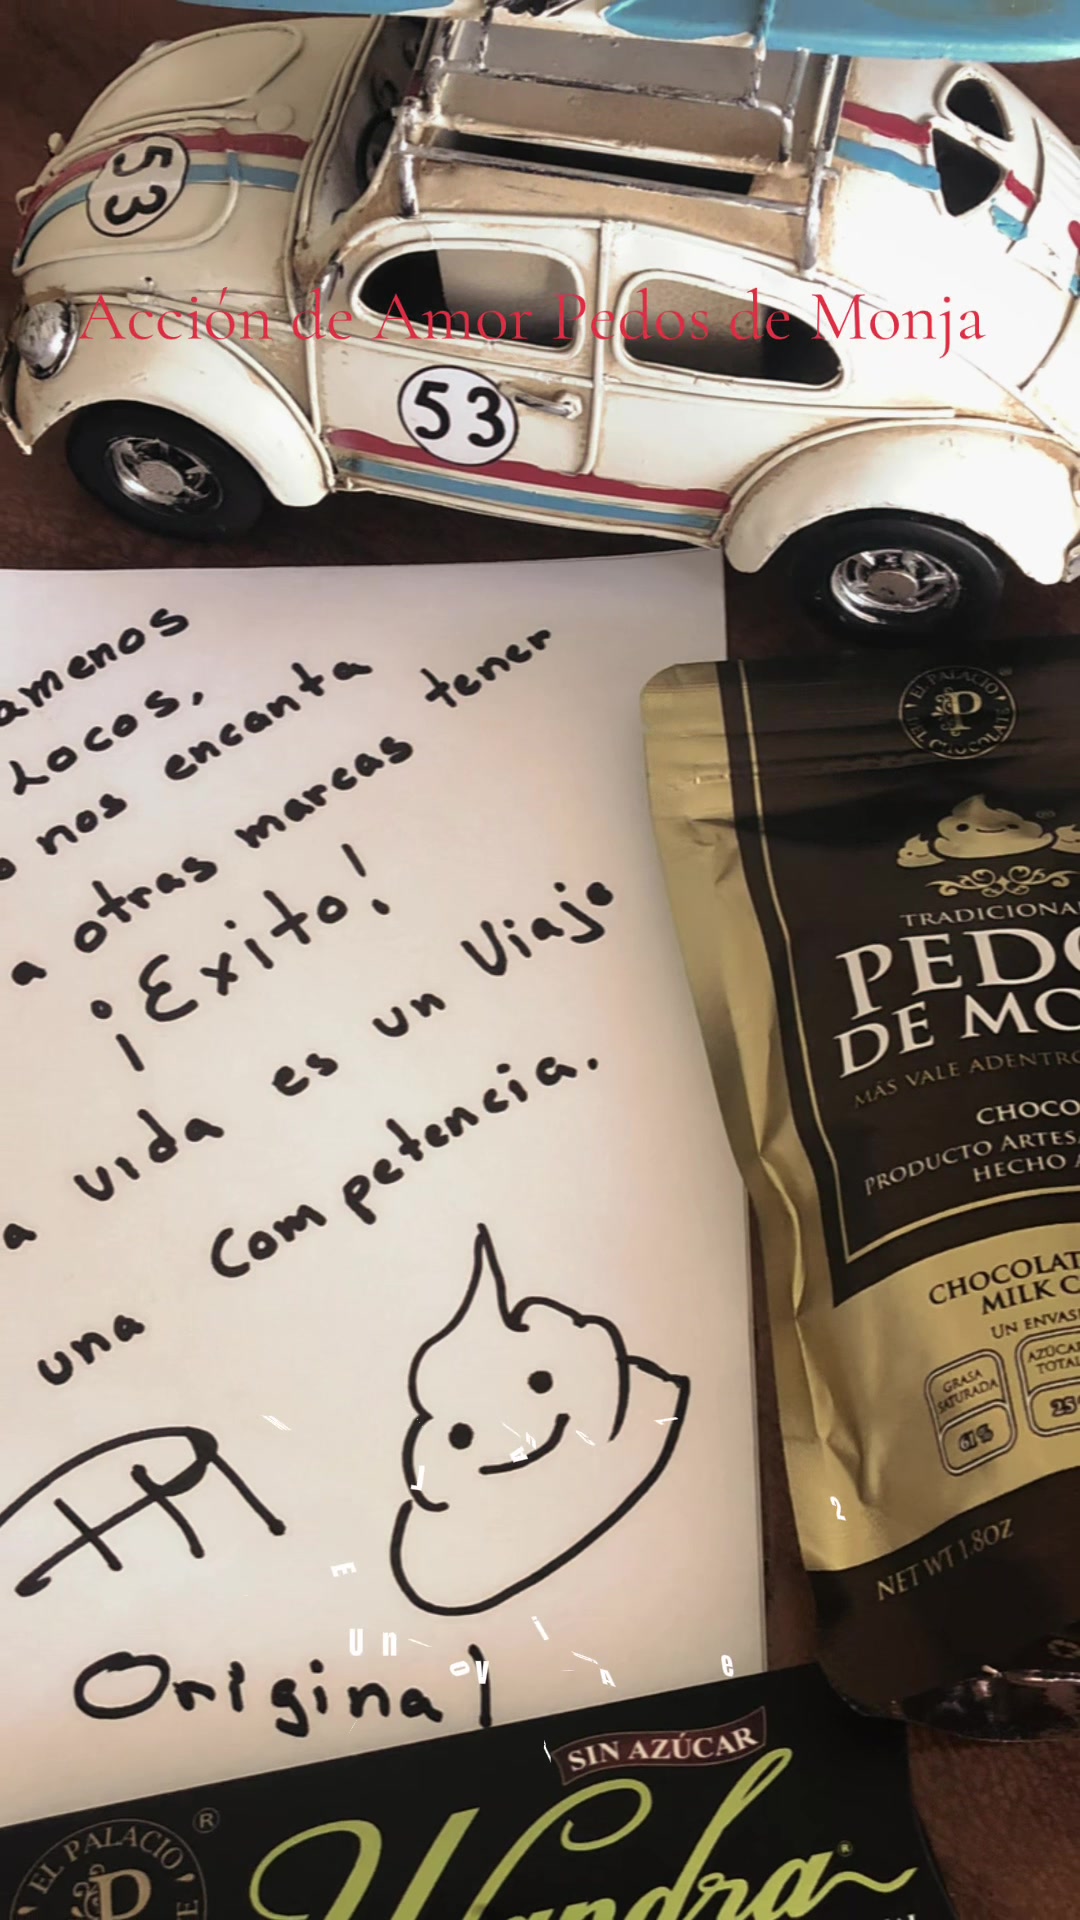 53
Acción de Amor Pedos de Monja
53
amenos
Locos,
nos encanta
a otras marcas tener
¡Exito!
a vida es un Viaje
una Competencia.
Original
EL PALACIO DEL CHOCOLATE
P
®
TRADICIONA
PEDO
DE MO
MÁS VALE ADENTRO
CHOCO
PRODUCTO ARTES
HECHO A
CHOCOLAT
MILK C
UN ENVAS
GRASA SATURADA
61%
AZÚCA
TOTAL
25
NET WT 1.8OZ
Un
SIN AZÚCAR
EL PALACIO
P
®
Wandra
®